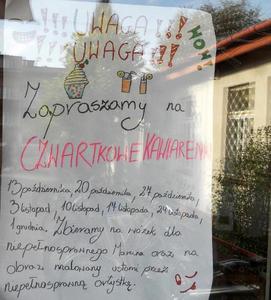 !!! UWAGA !!!
!!! UWAGA !!!
NOM!
Zapraszamy na
CZWARTKOWE KAWIARENKI
13 października, 20 października, 27 października,
3 listopad, 10 listopad, 17 listopada, 24 listopada,
1 grudnia. Zbieramy na wózek dla
niepełnosprawnego Marcina oraz na
obraz malowany ustami przez
niepełnosprawną artystkę.